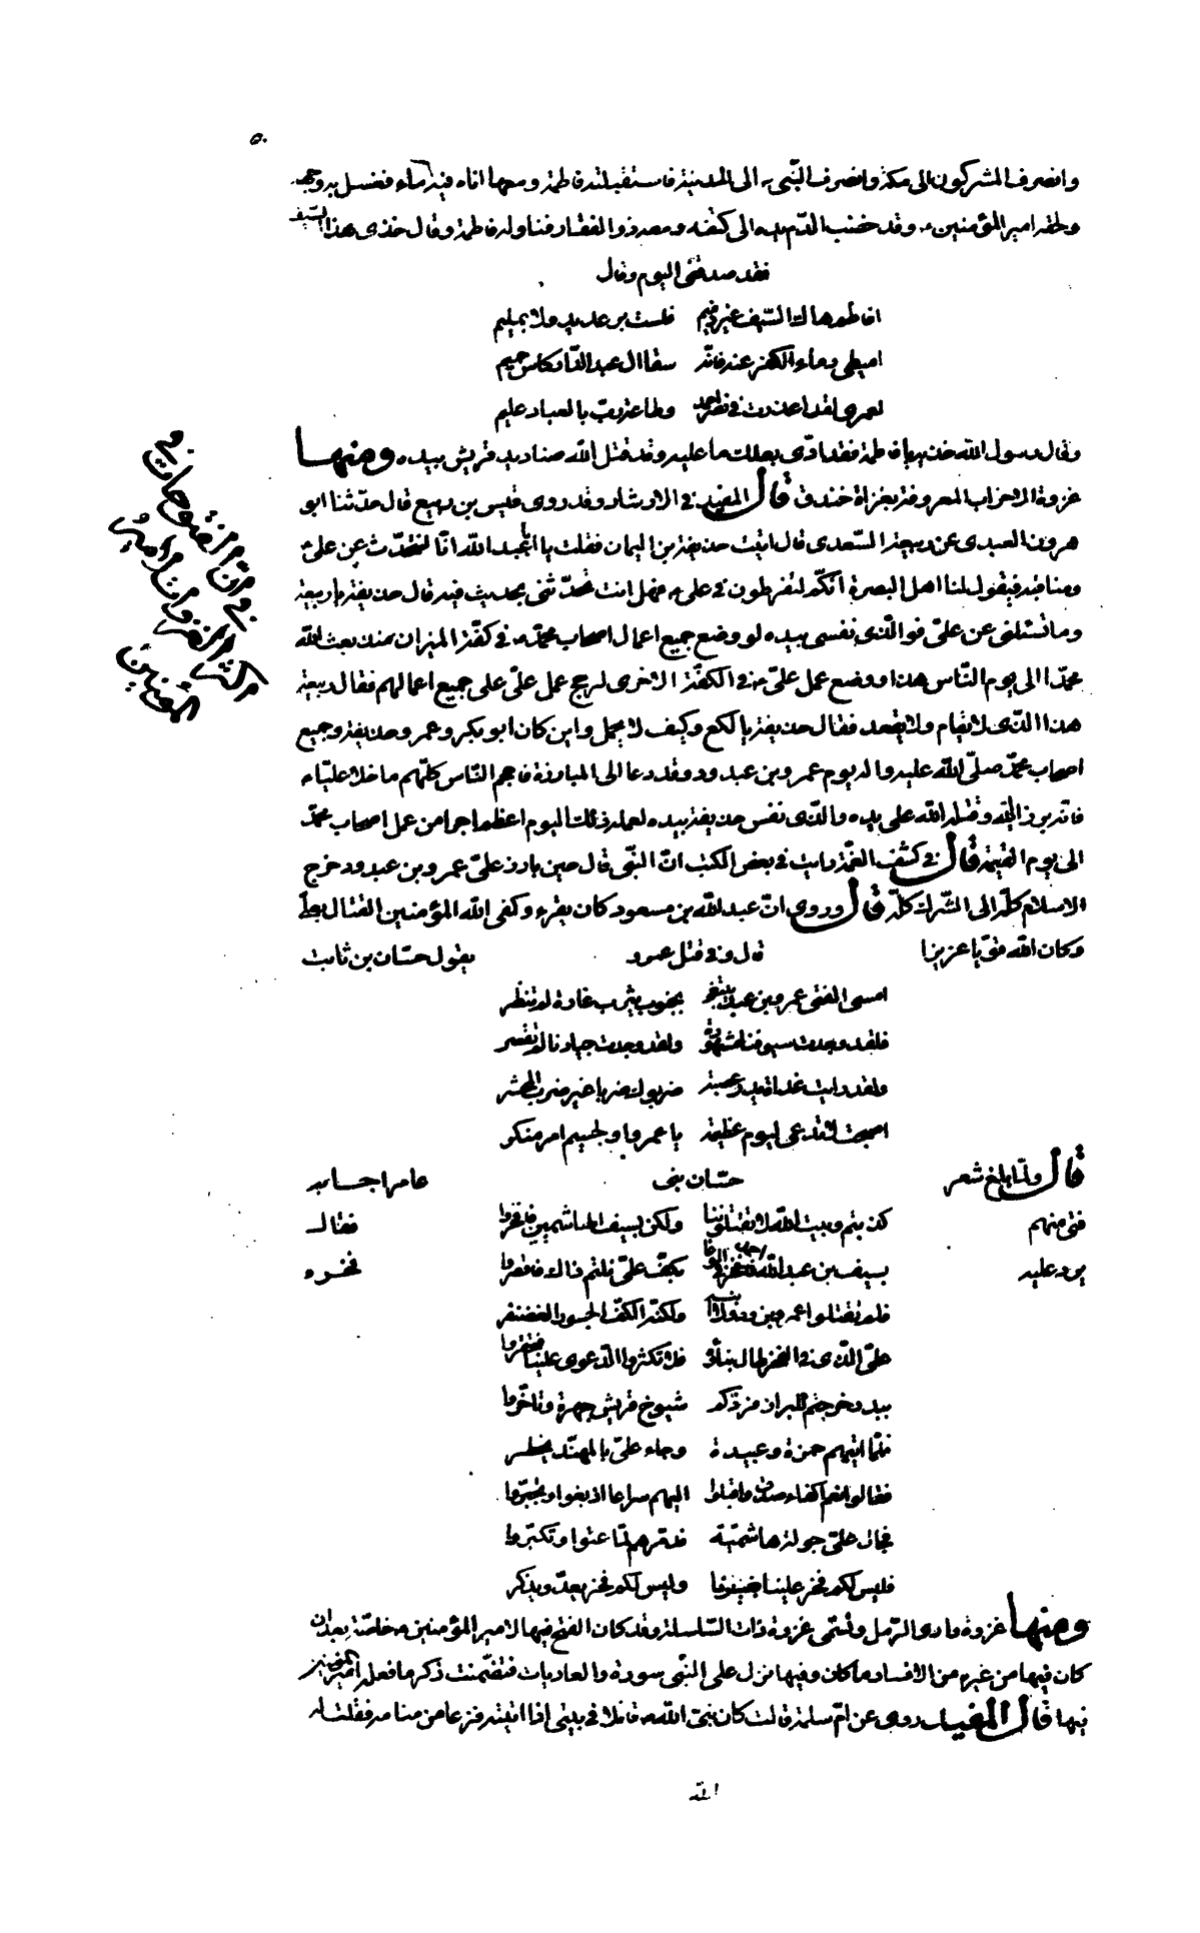 ٥٠
وانصرف المشركون الى مكة وانصرف النّبى ص الى المدينة فاستقبلته فاطمة ومعها اناء فيه ماء فغسل به وجهه
ولحقه امير المؤمنين ع وقد خضب الدّم يده الى كتفه ومعه ذو الفقار فناوله فاطمة وقال خذى هذا السّيف
فقد صدقنى اليوم وقال
افاطم هاك السّيف غير ذميم فلست برعديد ولا بمليم
اميطى دماء الكفر عنه فانّه سقا ال عبد الدّار كاس حميم
لعمرى لقد اعذرت فى نصر احمد وطاعة ربّ بالعباد عليم
وقال رسول الله خذيها يا فاطمة فقد ادّى بعلك ما عليه وقد قتل الله صناديد قريش بيده ومنها
غزوة الاحزاب المعروفة بغزاة خندق قال المفيد فى الارشاد وقد روى قيس بن ربيع قال حدّثنا ابو
هرون العبدى عن ربيعة السّعدى قال اتيت حذيفة بن اليمان فقلت يا ابا عبد الله انّا لنتحدّث عن علىّ
ومناقبه فيقول لنا اهل البصرة انّكم لتفرطون فى علىّ ع فهل انت محدّثنى بحديث فيه قال حذيفة يا ربيعة
وما تسئلنى عن علىّ فوالّذى نفسى بيده لو وضع جميع اعمال اصحاب محمّد ص فى كفّة الميزان منذ بعث الله
محمّدا الى يوم النّاس هذا ووضع عمل علىّ ع فى الكفّة الاخرى لرجح عمل علىّ على جميع اعمالهم فقال ربيعة
هذا الّذى لا يقام ولا يقعد فقال حذيفة يا لكع وكيف لا يحمل واين كان ابو بكر وعمر وحذيفة وجميع
اصحاب محمّد صلّى الله عليه واله يوم عمرو بن عبد ود وقد دعا الى المبارزة فاحجم النّاس كلّهم ما خلا عليّا ع
فانّه برز اليه وقتله الله على يده والّذى نفس حذيفة بيده لعمله ذلك اليوم اعظم اجرا من عمل اصحاب محمّد
الى يوم القيمة قال فى كشف الغمّة رايت فى بعض الكتب انّ النّبى قال حين بارز علىّ عمرو بن عبد ود خرج
الاسلام كلّه الى الشّرك كلّه قال وروى انّ عبد الله بن مسعود كان يقرء وكفى الله المؤمنين القتال بعلىّ
وكان الله قويّا عزيزا قال وفى قتل عمرو يقول حسّان بن ثابت
امسى الفتى عمرو بن عبد يبتغى بجنوب يثرب غارة لم تنظر
فلقد وجدت سيوفنا مشهورة ولقد وجدت جيادنا لم تقصر
ولقد رايت غداة بدر عصبة ضربوك ضربا غير ضرب المحشر
اصبحت لا تدعى ليوم عظيمة يا عمرو او لجسيم امر منكر
قال ولمّا بلغ شعر حسّان بنى عامر اجابه
فتى منهم كذبتم وبيت الله لا تقتلوننا ولكن بسيف الهاشميين فافخروا فقال
يرد عليه بسيف بن عبد الله احمد فى الوغا بكفّ علىّ نلتم ذاك فاقصروا فخره
فلم تقتلوا عمرو بن ود ولا ابنه ولكنّه الكفّ الجسور الغضنفر
علىّ الّذى فى الفخر طال بناؤه فلا تكثروا الدّعوى علينا فتفخروا
ببدر خرجتم للبراز فردّكم شيوخ قريش جهرة وتاخّروا
فلمّا اتيهم حمزة وعبيدة وجاء علىّ بالمهنّد يخطر
فقالوا نعم اكفاء صدق واقبلوا اليهم سراعا اذ بغوا وتجبّروا
فجال علىّ جولة هاشميّة فدمّرهم لمّا عتوا وتكبّروا
فليس لكم فخر علينا بغيرنا وليس لكم فخر يعدّ ويذكر
ومنها غزوة وادى الرّمل وتسمّى غزوة ذات السّلسلة وقد كان الفتح فيها لامير المؤمنين ع خاصّة بعد ان
كان فيها من غيره من الافساد ما كان وفيها نزل على النّبى سورة والعاديات فتضمّنت ذكر ما فعل امير المؤمنين
فيها قال المفيد روى عن امّ سلمة قالت كان نبىّ الله ص قائلا فى بيتى اذا انتبه فزعا من منامه فقلت له
الله
فى
ان الفتوحات
فى اكثر الغزوات من امير
المؤمنين